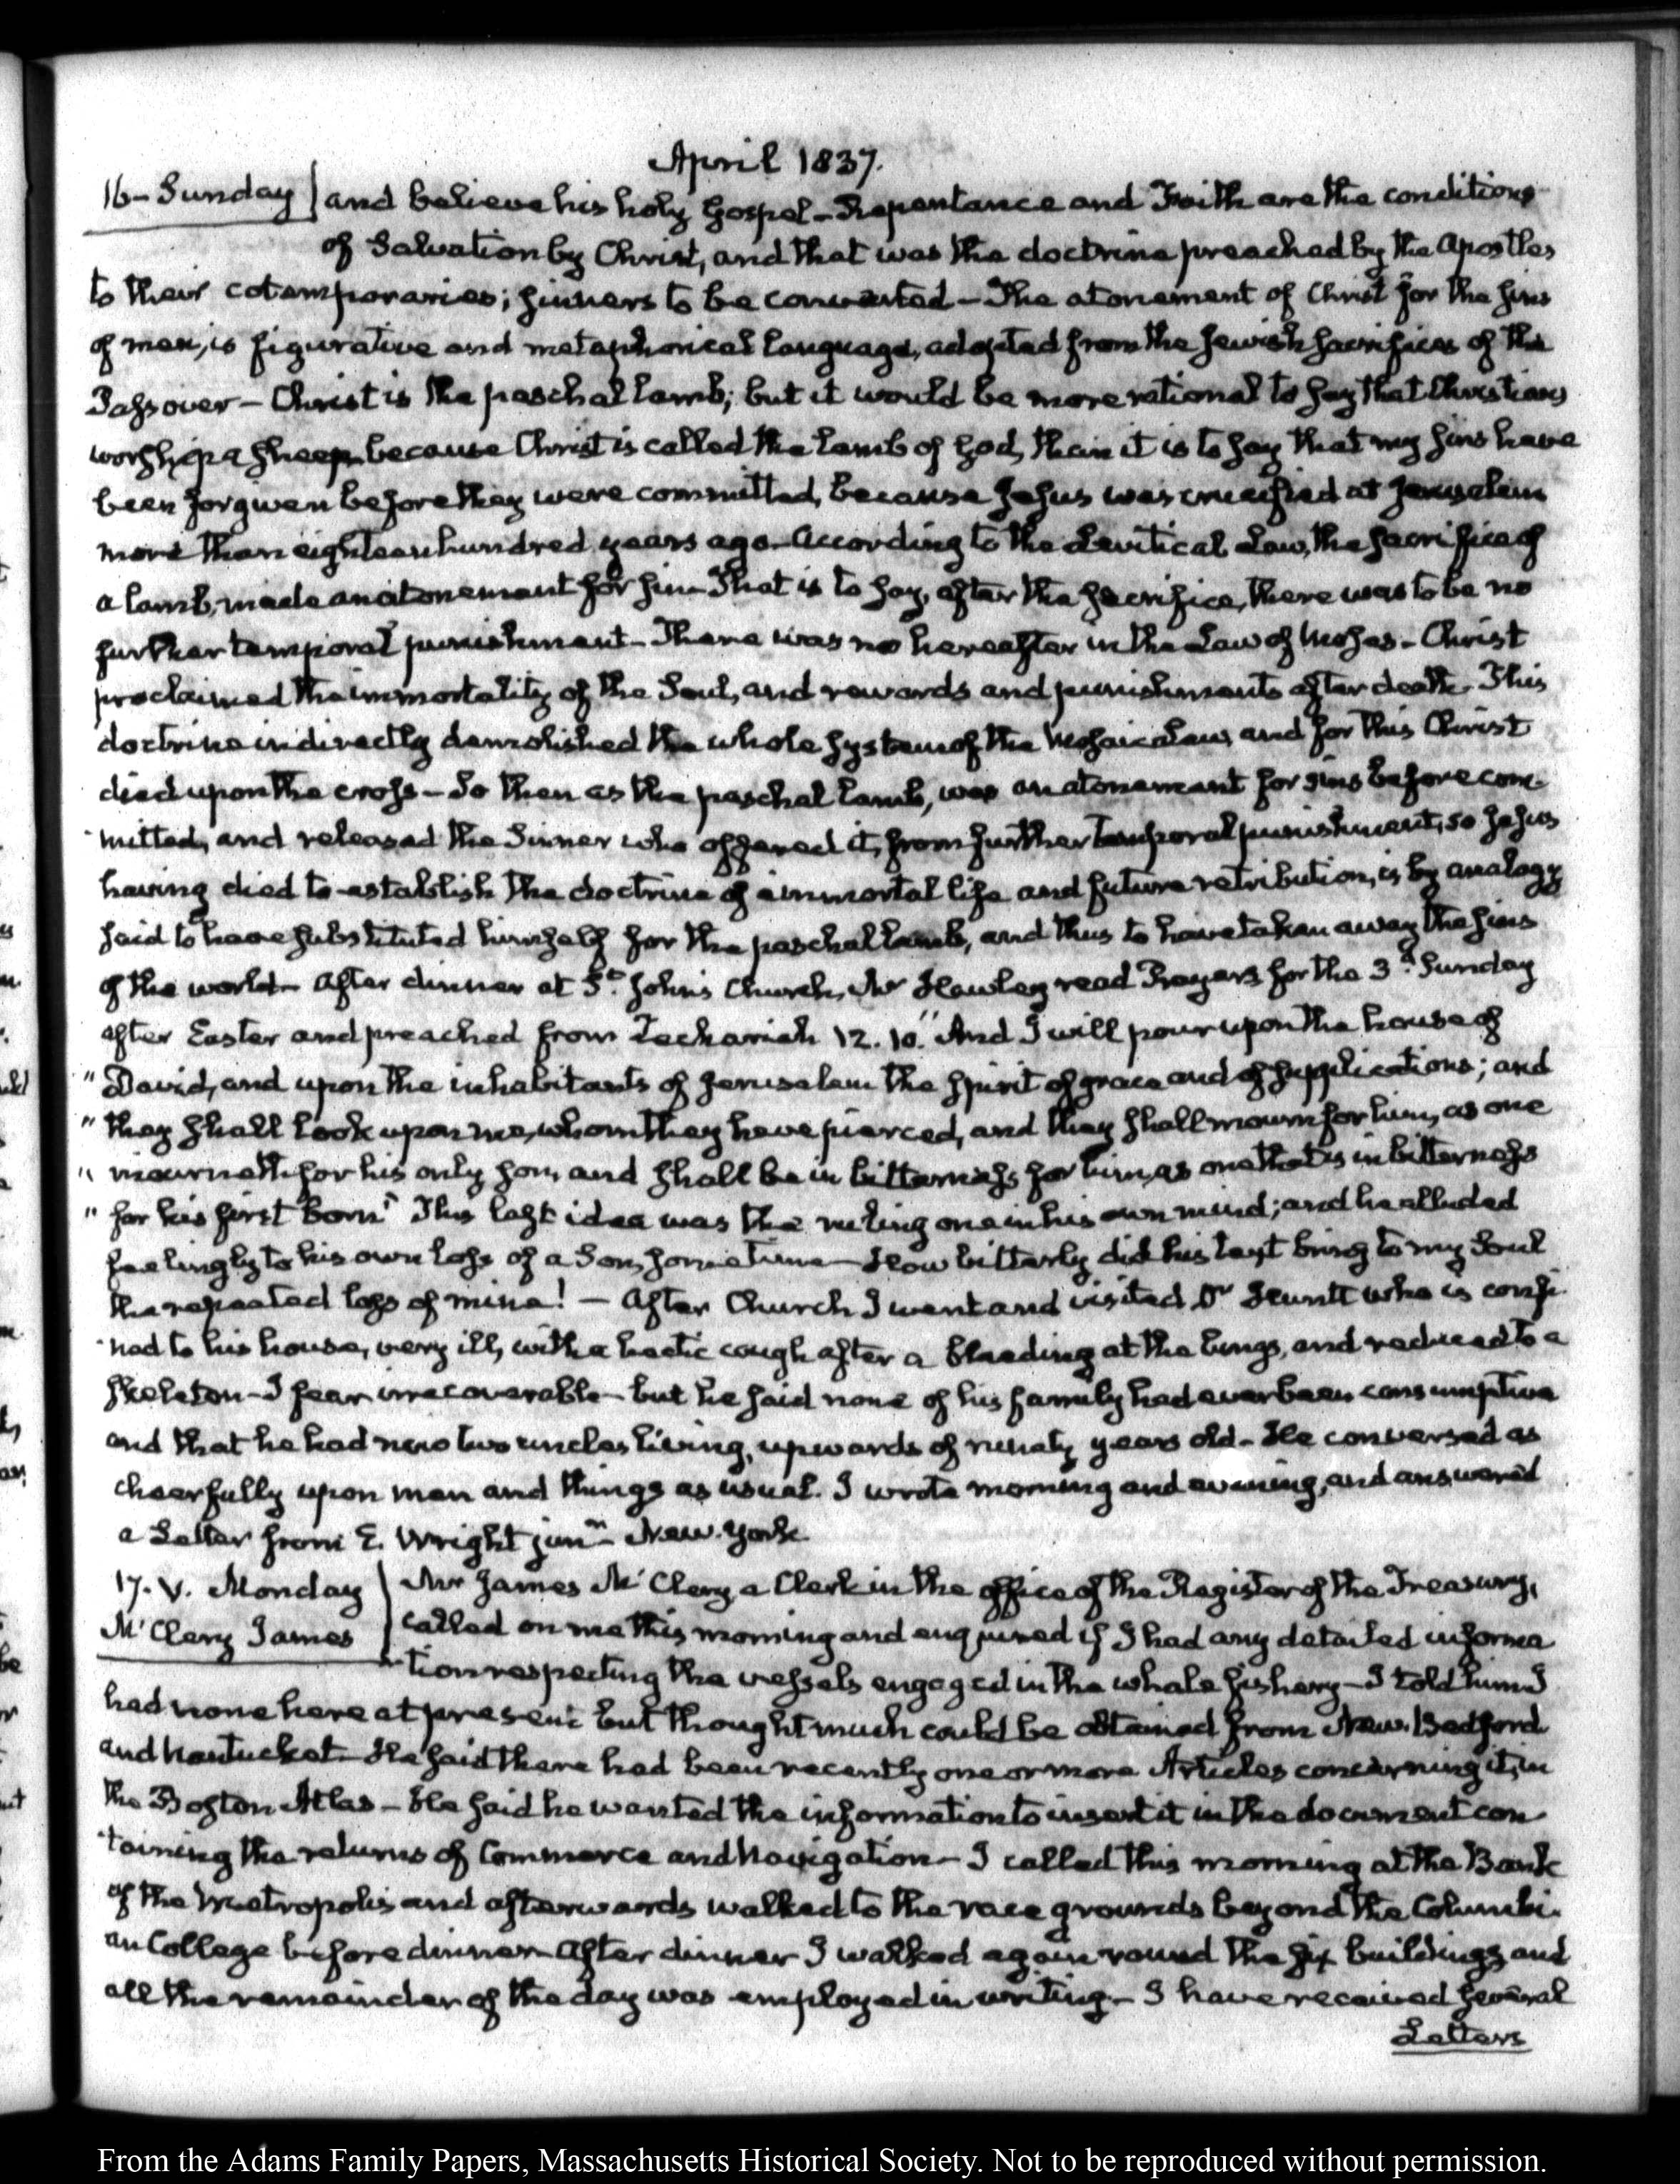 April 1837.
16 - Sunday
and believe his holy Gospel - Repentance and Faith are the conditions
of Salvation by Christ, and that was the doctrine preached by the Apostles
to their cotemporaries; sinners to be converted - The atonement of Christ for the sins
of men, is figurative and metaphorical language, adopted from the Jewish sacrifices of the
Passover - Christ is the paschal lamb; but it would be more rational to say that Christians
worship a sheep because Christ is called the lamb of God, than it is to say that my sins have
been forgiven before they were committed, because Jesus was crucified at Jerusalem
more than eighteen hundred years ago - According to the Levitical Law, the sacrifice of
a lamb, made an atonement for sin - That is to say, after the sacrifice, there was to be no
further temporal punishment - There was no hereafter in the Law of Moses - Christ
proclaimed the immortality of the Soul, and rewards and punishments after death. This
doctrine indirectly demolished the whole system of the Mosaic Law, and for this Christ
died upon the cross - So then as the paschal lamb, was an atonement for sins before com-
mitted, and released the Sinner who offered it, from further temporal punishment, so Jesus
having died to establish the doctrine of immortal life and future retribution, is by analogy
said to have substituted himself for the paschal lamb, and thus to have taken away the sins
of the world - After dinner at St. John's Church, Mr Hawley read Prayers for the 3d. Sunday
after Easter and preached from Zechariah 12. 10. "And I will pour upon the house of
" David, and upon the inhabitants of Jerusalem the spirit of grace and of supplications; and
" they shall look upon me, whom they have pierced, and they shall mourn for him, as one
" mourneth for his only son, and shall be in bitterness for him, as one that is in bitterness
" for his first born" This last idea was the ruling one in his own mind; and he alluded
feelingly to his own loss of a Son, sometime - How bitterly did his text bring to my Soul
the repeated loss of mine! - After Church I went and visited Dr Hunt who is confi-
ned to his house, very ill, with a hectic cough after a bleeding at the lungs, and reduced to a
skeleton - I fear irrecoverable - but he said none of his family had ever been consumptive
and that he had now two uncles living, upwards of ninety years old - He conversed as
cheerfully upon men and things as usual. I wrote morning and evening, and answered
a Letter from E. Wright junr. New-York
17. V. Monday
McClery James
Mr James McClery, a Clerk in the office of the Register of the Treasury,
called on me this morning and enquired if I had any detailed informa
-tion respecting the vessels engaged in the whale fishery - I told him I
had none here at present but thought much could be obtained from New-Bedford
and Nantucket - He said there had been recently one or more Articles concerning it, in
the Boston Atlas - He said he wanted the information to insert it in the document con-
taining the returns of Commerce and Navigation - I called this morning at the Bank
of the Metropolis and afterwards walked to the race grounds beyond the Columbi-
an College before dinner - After dinner I walked again round the six buildings, and
all the remainder of the day was employed in writing - I have received several
Letters
From the Adams Family Papers, Massachusetts Historical Society. Not to be reproduced without permission.